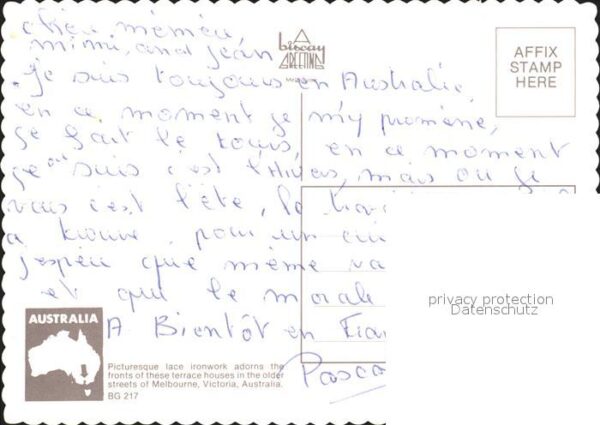 chère mémère,
mimi, and Jean
je suis toujours en Australie,
en ce moment je m'y promène,
je fait le tours, en ce moment
je suis c'est l'hivers, mais où je
vais c'est l'été, le
a trouve, pour un
j'espère que mémé va
et que le morale
A Bientôt en
A
biscay
GREETING
AFFIX
STAMP
HERE
privacy protection
Datenschutz
AUSTRALIA
Picturesque lace ironwork adorns the
fronts of these terrace houses in the older
streets of Melbourne, Victoria, Australia.
BG 217